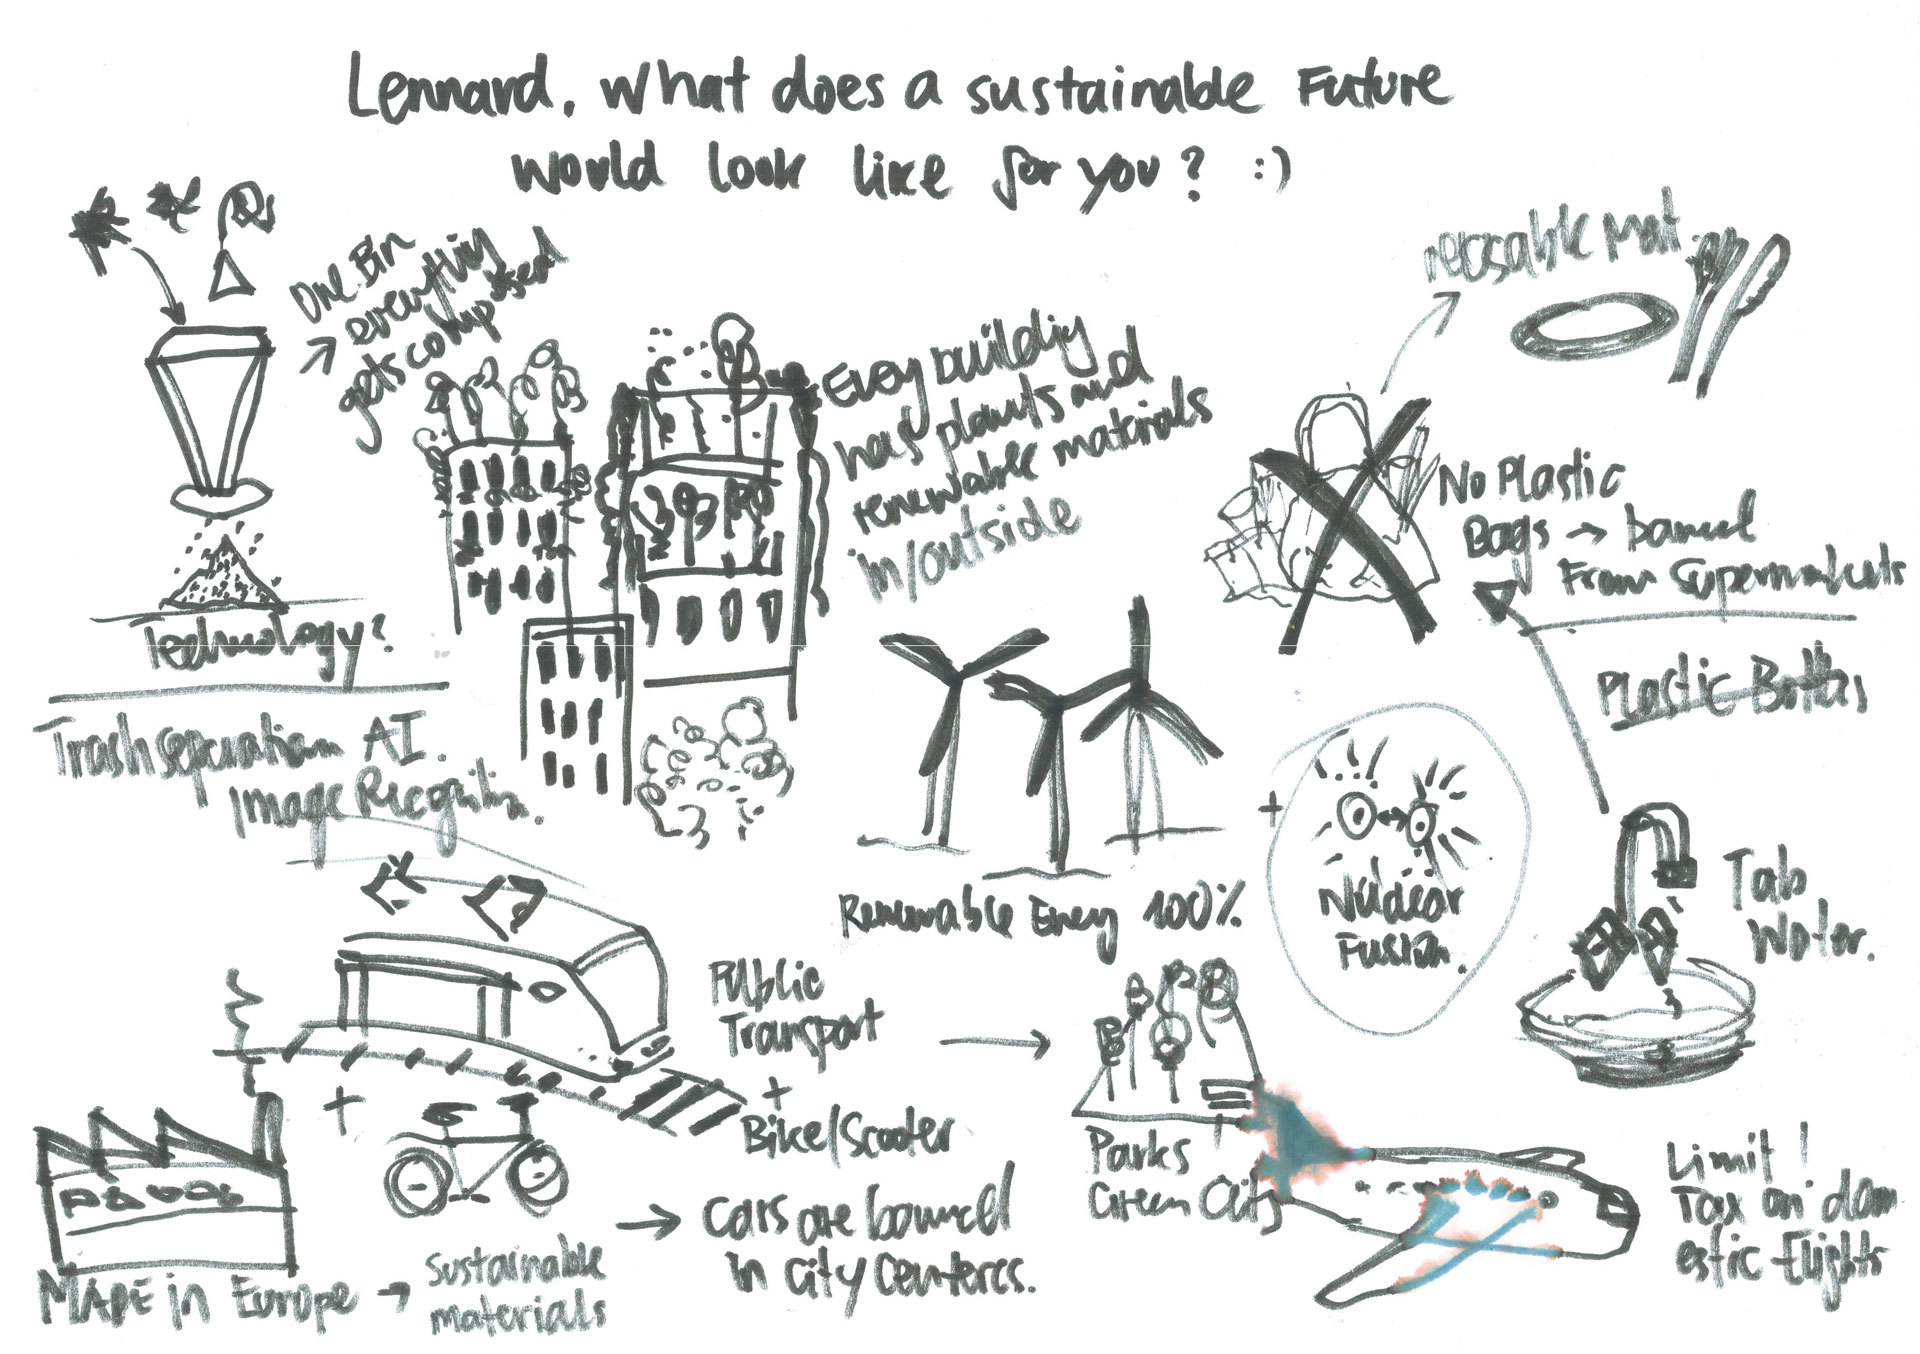 Lennard, what does a sustainable Future
would look like for you? :)
One Bin
→ everything
gets composed
Technology?
Trashseparation AI.
Image Recognition.
Every building
has plants and
renewable materials
in/outside
reusable mat.
No Plastic
Bags → banned
From Supermarkets
Plastic Bottles
Renewable Energy 100%
+
Nuclear
Fusion.
Tab
Water.
Public
Transport
+
Bike/Scooter
→ Cars are banned
in city centeres.
+
MADE in Europe → sustainable
materials
Parks
Green City
Limit!
Tax on dom
estic Flights